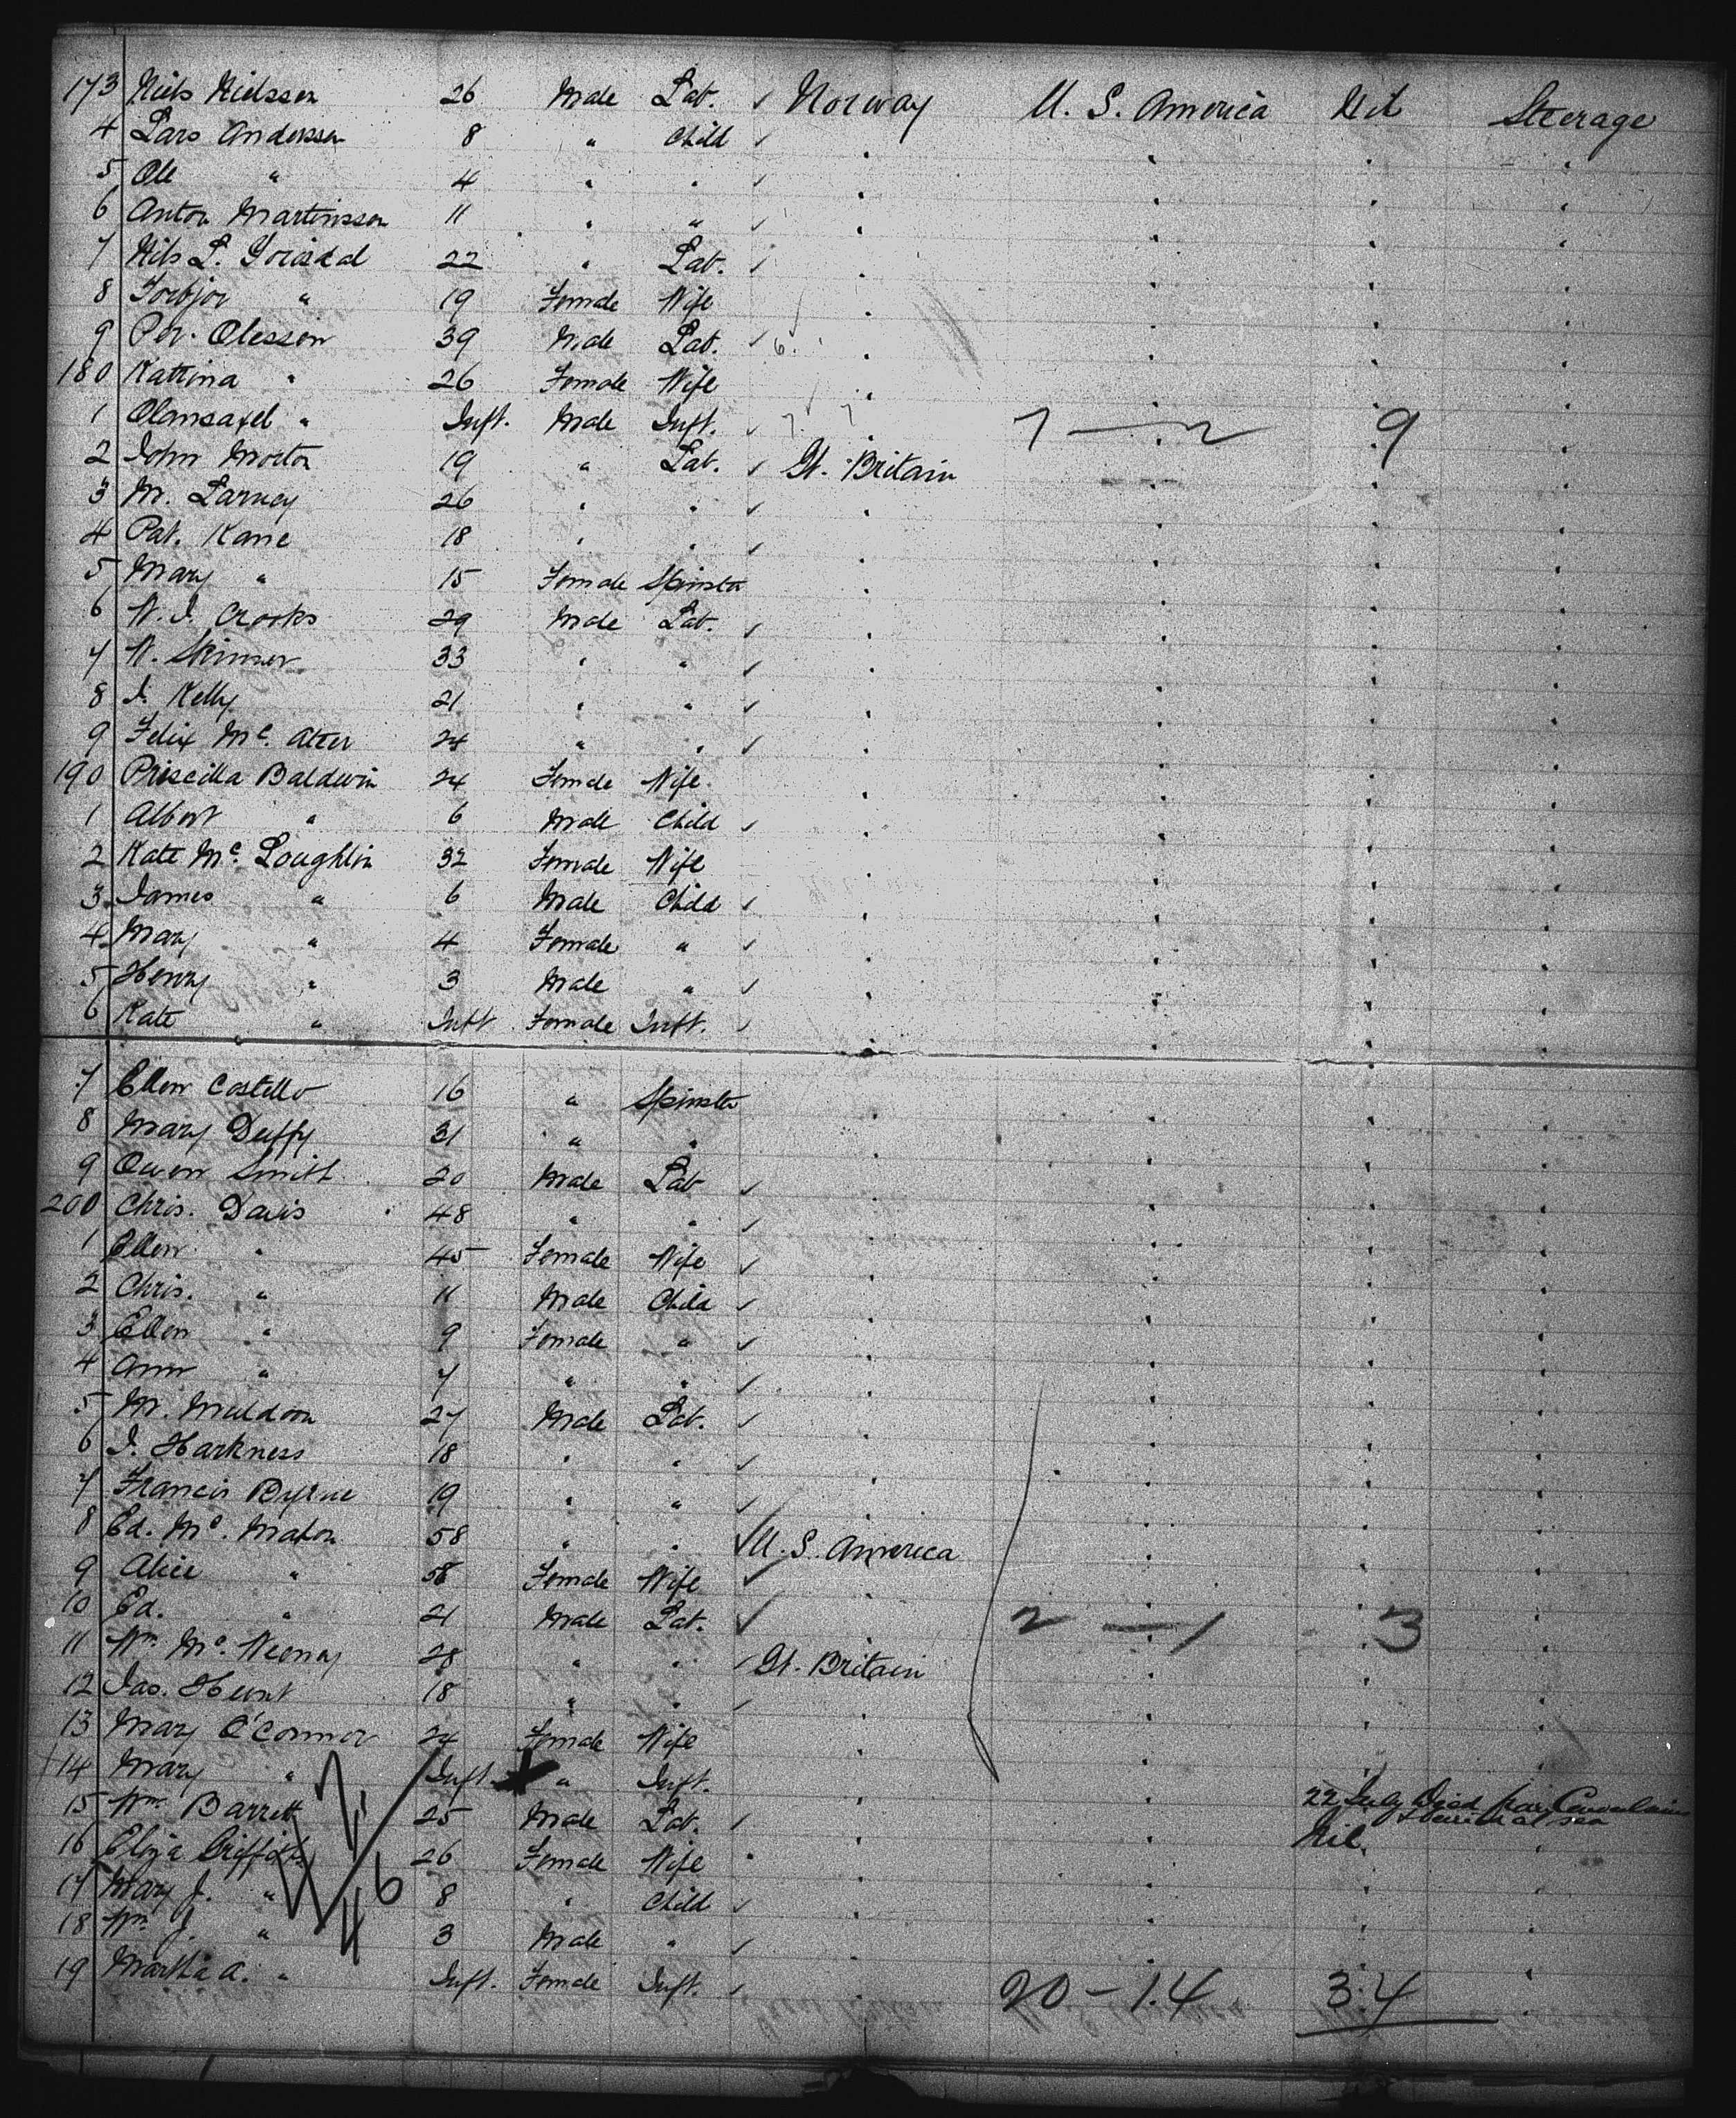 173 Niels Nielssen 26 Male Lab. ✓ Norway U. S. America Nil Steerage
4 Lars Anderssen 8 " Child ✓ " " " "
5 Ole " 4 " " ✓ " " " "
6 Anton Martinssen 11 " " ✓ " " " "
7 Nils L. 22 " Lab. ✓ " " " "
8 Torbjor " 19 Female Wife " " " "
9 Per. Olessen 39 Male Lab. ✓ 6 " " " "
180 Katrina " 26 Female Wife " " " "
1 " Inft. Male Inft. ✓ 7 7 " 7 — 2 9 "
2 John Morton 19 " Lab. ✓ Gt. Britain " " "
3 M. Larney 26 " " ✓ " " " "
4 Pat. Kane 18 " " ✓ " " " "
5 Mary " 15 Female Spinster " " " "
6 W. J. Crooks 29 Male Lab. ✓ " " " "
7 W. Skinner 33 " " ✓ " " " "
8 J. Kelly 21 " " ✓ " " " "
9 Felix Mc. Ateer 24 " " ✓ " " " "
190 Priscilla Baldwin 24 Female Wife " " " "
1 Albert " 6 Male Child ✓ " " " "
2 Kate Mc. Loughlin 32 Female Wife " " " "
3 James " 6 Male Child ✓ " " " "
4 Mary " 4 Female " ✓ " " " "
5 Henry " 3 Male " ✓ " " " "
6 Kate " Inft Female Inft. ✓ " " " "
7 Ellen Costello 16 " Spinster " " " "
8 Mary Duffy 31 " " " " " "
9 Owen Smith 20 Male Lab ✓ " " " "
200 Chris. Davis 48 " " ✓ " " " "
1 Ellen " 45 Female Wife ✓ " " " "
2 Chris. " 11 Male Child ✓ " " " "
3 Ellen " 9 Female " ✓ " " " "
4 Ann " 7 " " ✓ " " " "
5 M. Muldoon 27 Male Lab. ✓ " " " "
6 J. Harkness 18 " " ✓ " " " "
7 Francis Byrne 19 " " ✓ " " " "
8 Ed. Mc. Mahon 58 " " ✓ U. S. America " " "
9 Alice " 58 Female Wife ✓ " " " "
10 Ed. " 21 Male Lab. ✓ " 2 — 1 3 "
11 Wm. Mc. 28 " " ✓ Gt. Britain " " "
12 Jas. Hunt 18 " " ✓ " " " "
13 Mary O'Connor 24 Female Wife " " " "
14 Mary " Inft. " Inft. " " 22 July Died from Convulsions
& buried at sea
15 Wm. Barrett 25 Male Lab. ✓ " " Nil "
16 Eliza Griffith 26 Female Wife " " " "
17 Mary J. " 8 " Child ✓ " " " "
18 Wm. J. " 3 Male " ✓ " " " "
19 Martha A. " Inft. Female Inft. ✓ " 20 - 14 34 "